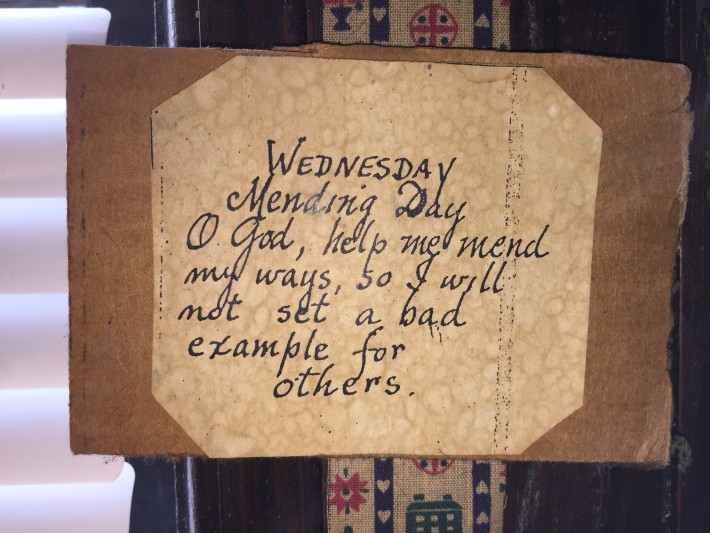 WEDNESDAY
Mending Day
O God, help me mend
my ways, so I will
not set a bad
example for
others.